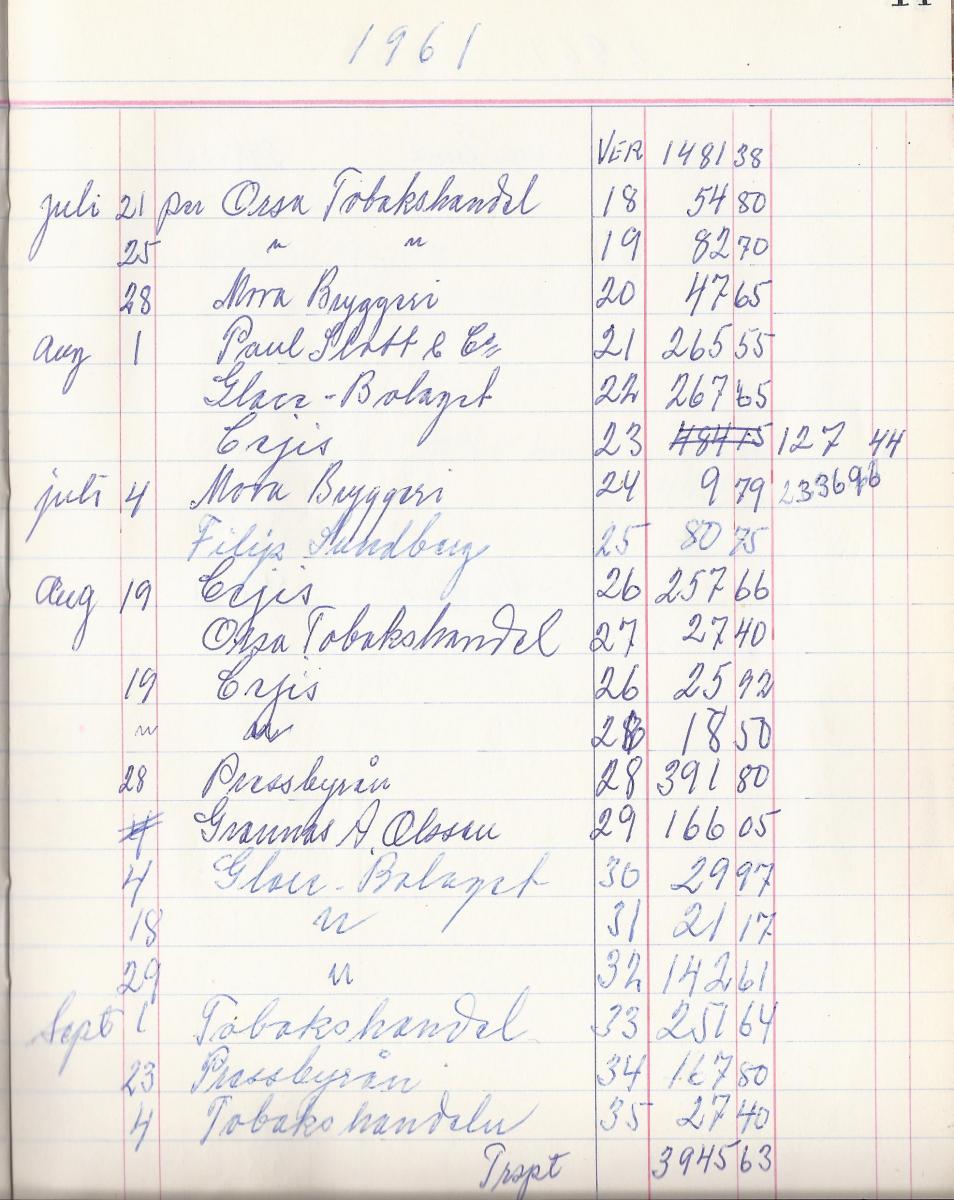 1961
VER 1481 38
juli 21 per Orsa Tobakshandel 18 54 80
25 " " 19 82 70
28 Mora Bryggeri 20 47 65
aug 1 Paul & Co 21 265 55
Glace-Bolaget 22 267 65
Erjis 23 484 15 127 44
juli 4 Mora Bryggeri 24 9 79
Filip Sundberg 25 80 75
Aug 19 Erjis 26 257 66
Orsa Tobakshandel 27 27 40
19 Erjis 26 25 92
" " 18 50
28 Pressbyrån 28 391 80
Grannas A. Olsson 29 166 05
4 Glace-Bolaget 30 29 97
18 " 31 21 17
29 " 32 142 61
Sept 1 Tobakshandel 33 251 64
23 Pressbyrån 34 167 80
4 Tobakshandeln 35 27 40
Trspt 3945 63